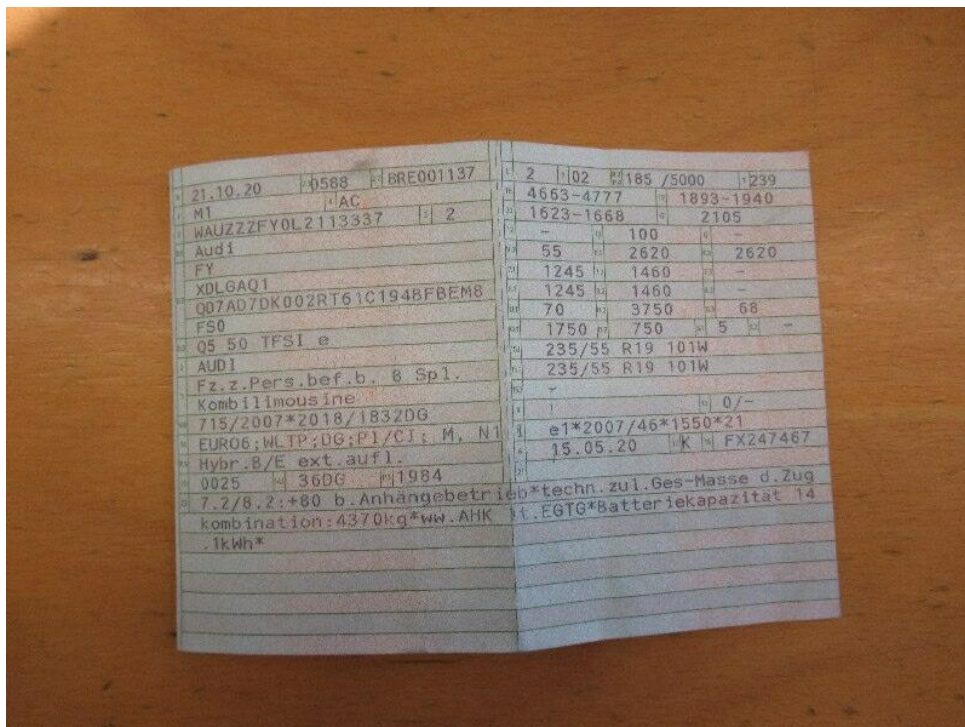 21.10.20 0588 BRE001137
M1 AC
WAUZZZFY0L2113337 2
Audi
FY
XDLGAQ1
QD7AD7DK002RT61C1948FBEM8
FS0
Q5 50 TFSI e
AUDI
Fz.z.Pers.bef.b. 8 Spl.
Kombilimousine
715/2007*2018/1832DG
EURO6;WLTP;DG;PI/CI; M, N1
Hybr.B/E ext.aufl.
0025 36DG 1984
2 02 185 /5000 239
4663-4777 1893-1940
1623-1668 2105
- 100 -
55 2620 2620
1245 1460 -
1245 1460 -
70 3750 68
1750 750 5 -
235/55 R19 101W
235/55 R19 101W
-
! 0/-
e1*2007/46*1550*21
15.05.20 K FX247467
7.2/8.2:+80 b.Anhängebetrieb*techn.zul.Ges-Masse d.Zug
kombination:4370kg*ww.AHK lt.EGTG*Batteriekapazität 14
.1kWh*